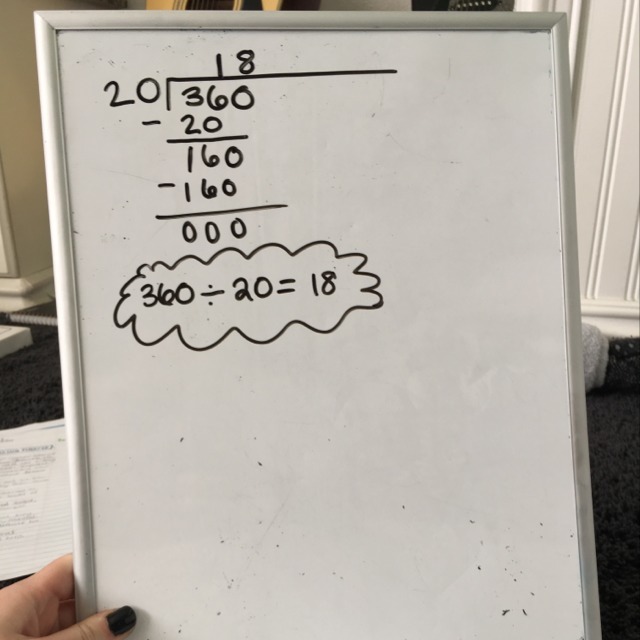 18
20)360
- 20
160
-160
000
360 ÷ 20 = 18